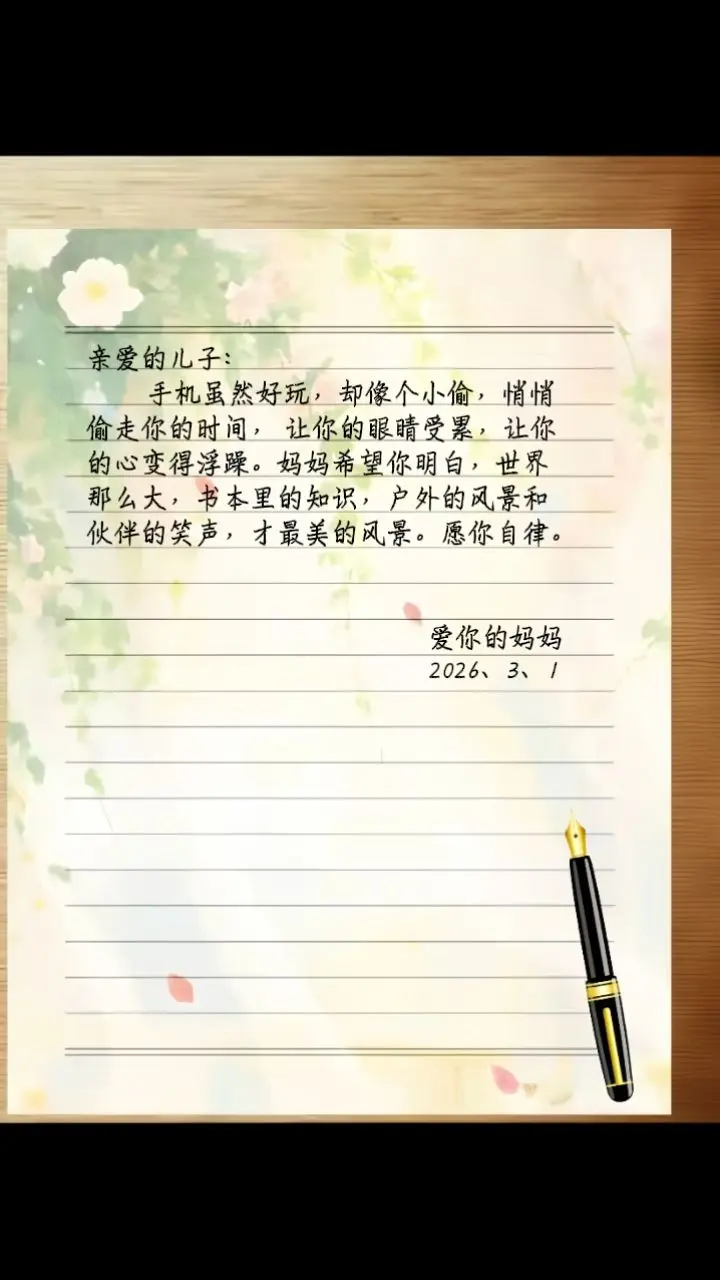 亲爱的儿子：
手机虽然好玩，却像个小偷，悄悄
偷走你的时间， 让你的眼睛受累，让你
的心变得浮躁。妈妈希望你明白，世界
那么大，书本里的知识，户外的风景和
伙伴的笑声，才最美的风景。愿你自律。
爱你的妈妈
2026、3、1